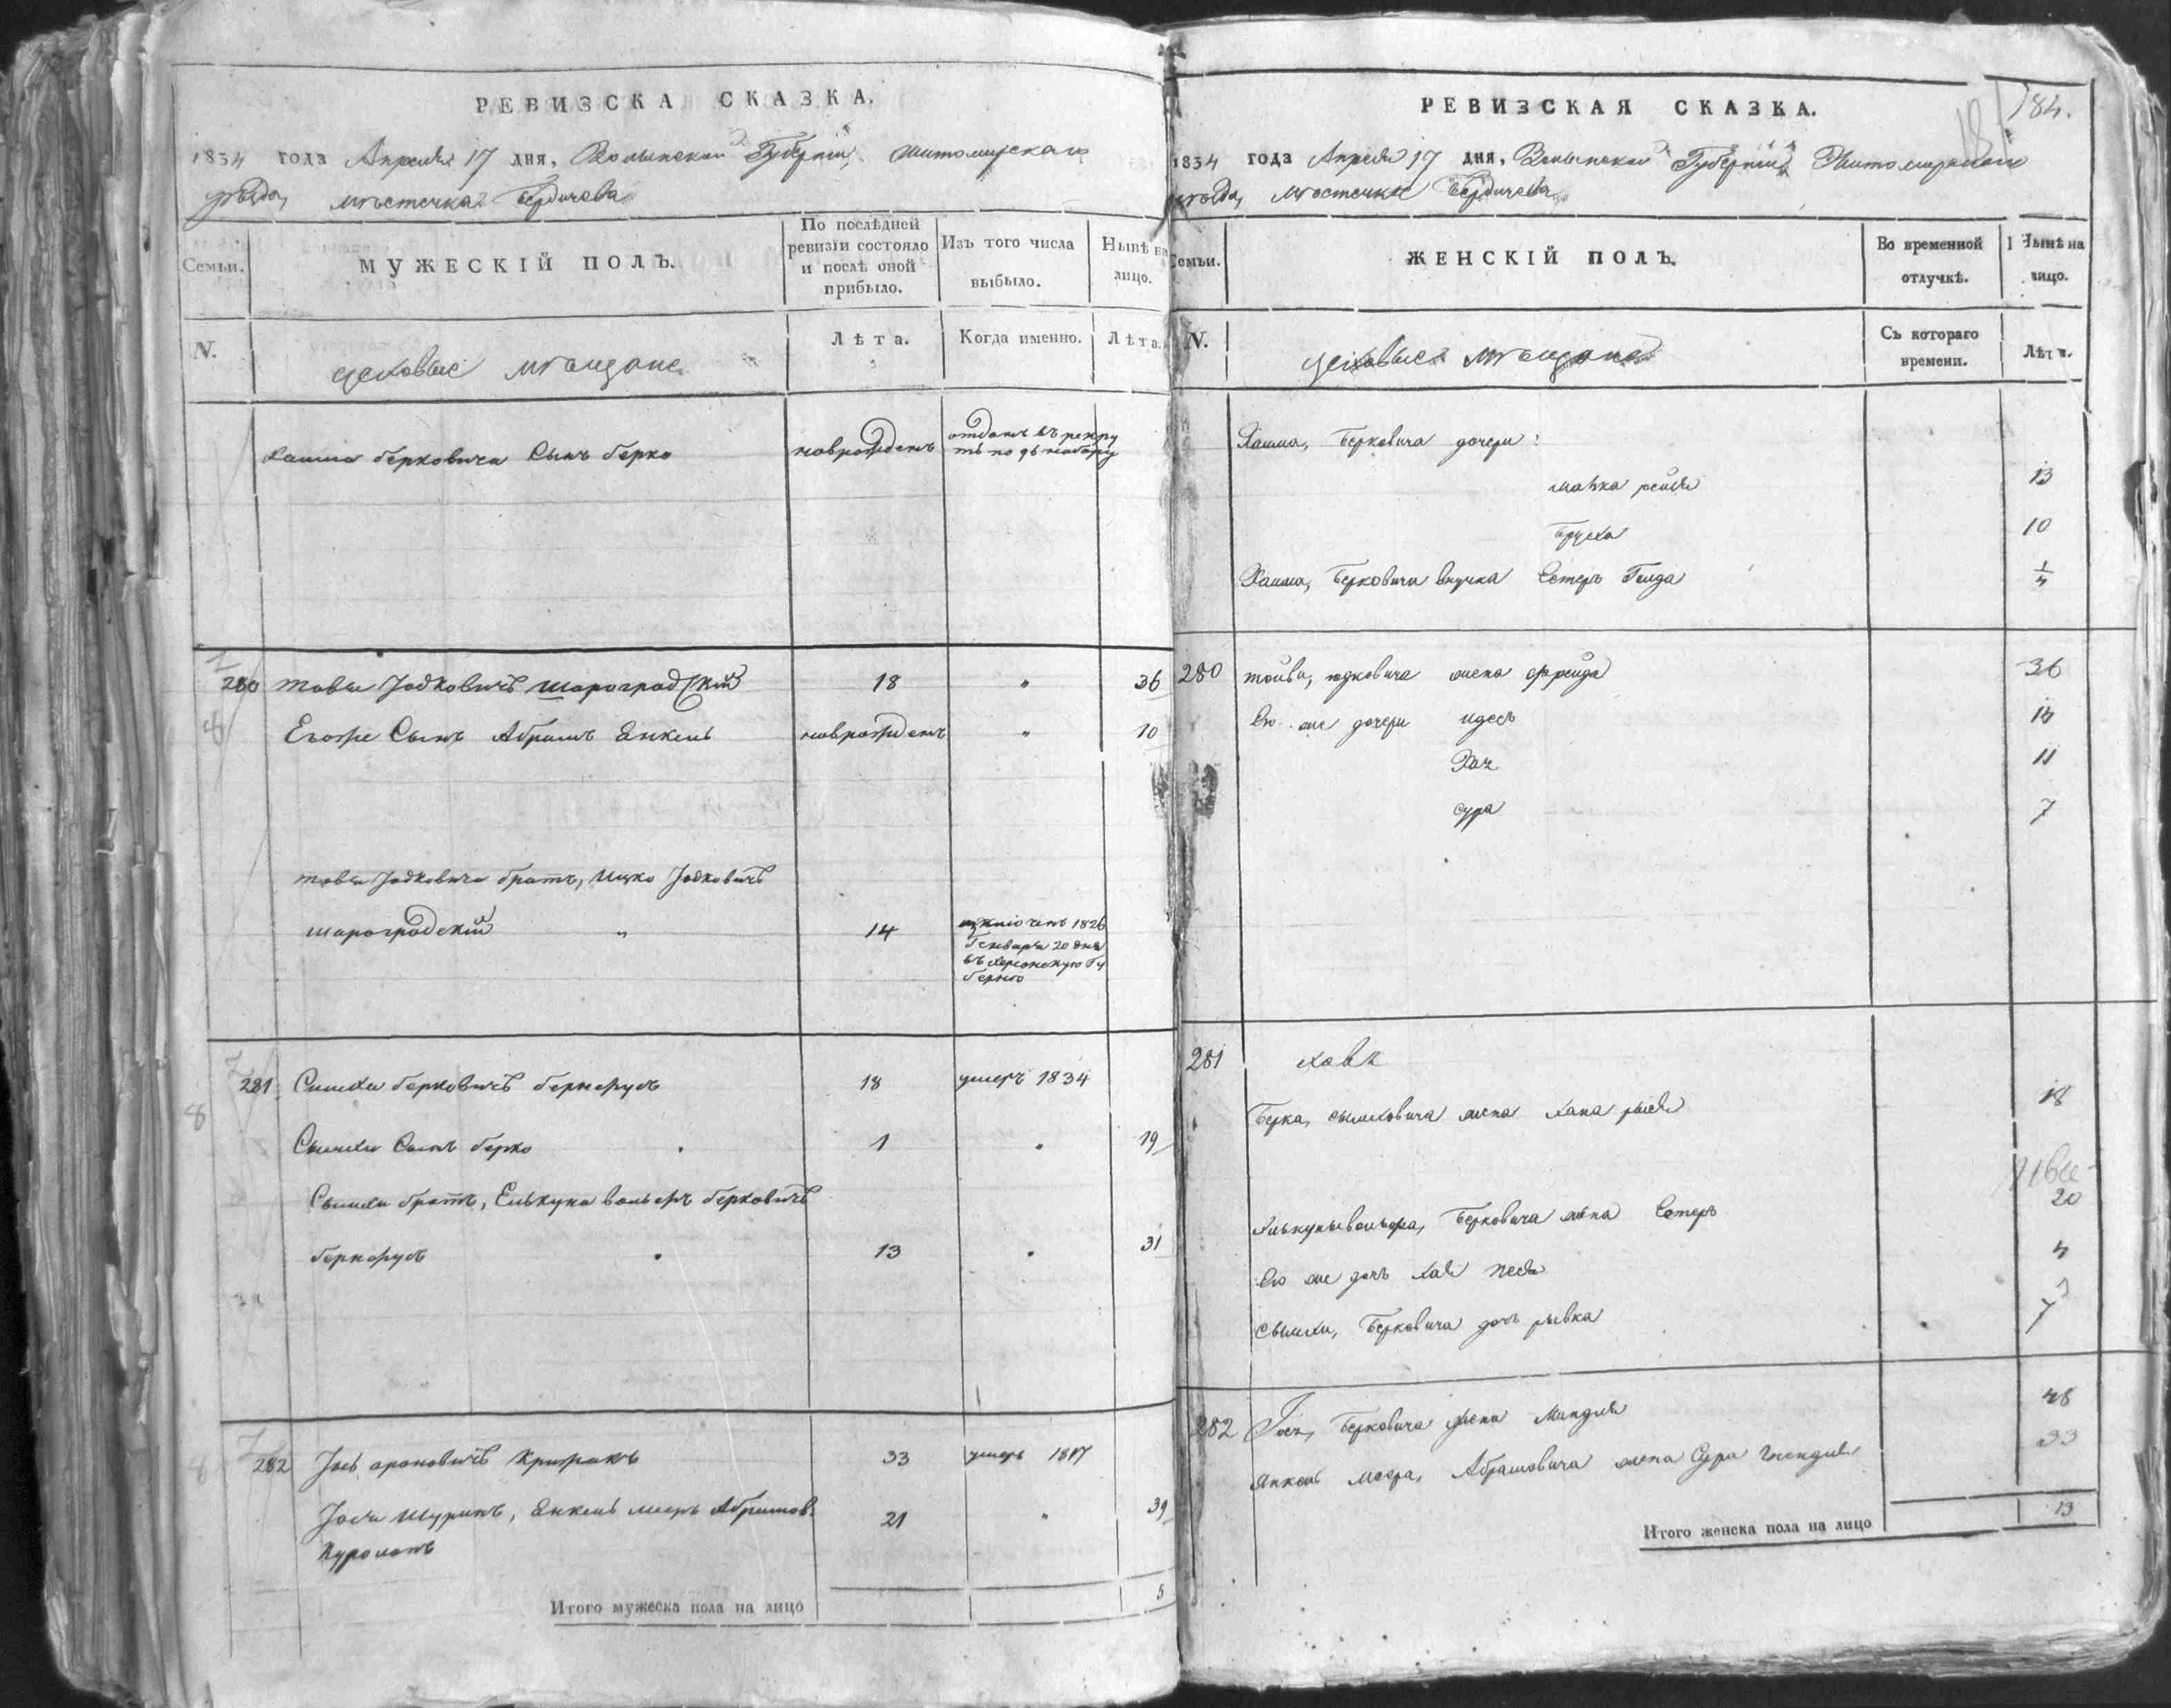 РЕВИЗСКА СКАЗКА.
1834 года Апреля 17 дня, Волынской Губерніи, Житомирскаго
уѣзда, мѣстечка Бердичева
Семьи.
МУЖЕСКІЙ ПОЛЪ.
По послѣдней ревизіи состояло и послѣ оной прибыло.
Изъ того числа выбыло.
Нынѣ на лицо.
N.
цеховые мѣщане
Лѣта.
Когда именно.
Лѣта.
Хаима Берковича Сынъ Берко новрожденъ отданъ въ рекру
ты по 96 набору
280 Товы Іодковичъ Шароградскій 18 " 36
Егоже Сынъ Абрамъ Енкель новрожденъ " 10
Товы Іодковича братъ, Ицко Іодковичъ
Шароградскій " 14 изключенъ 1826
Генваря 20 дня
въ Херсонскую Гу
бернію
281 Симхи Берковичъ 18 умеръ 1834
Сымхи Сынъ Берко 1 " 19
Сымхи братъ, Елькуна Вольфъ Берковичъ
13 " 31
282 Іось Ароновичъ 33 умеръ 1817
Іося Шуринъ, Енкель Мееръ Абрамов:
21 " 39
Итого мужеска пола на лицо 5
184.
РЕВИЗСКАЯ СКАЗКА.
1834 года Апреля 17 дня, Волынской Губерніи Житомирскаго
уѣзда, мѣстечка Бердичева
Семьи.
ЖЕНСКІЙ ПОЛЪ.
Во временной отлучкѣ.
Нынѣ на лицо.
N.
цеховые мѣщане
Съ котораго времени.
Лѣта.
Хаима, Берковича дочери:
Малка Рейзя 13
Бруха 10
Хаима, Берковича внучка Естеръ Голда
280 Тойвы, Юдковича жена Фрейда 36
Его же дочери Идесъ
Хая 11
Сура 7
281
Берка, Сымховича жена Хана Рыся 18
Берковича жена Естеръ 20
Его же дочь Хая Песя 4
Сымхи, Берковича дочь Рывка 7
282 Іося, Берковича жена Миндля 48
Янкель Меера, Абрамовича жена Сура Гнендля 33
Итого женска пола на лицо 13